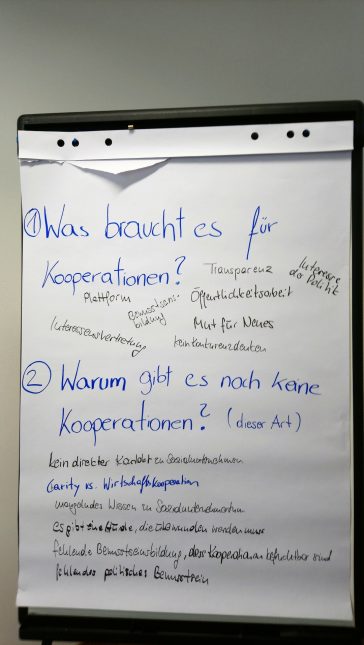 ① Was braucht es für
Kooperationen?
Transparenz
Interesse
der Politik
Plattform
Bewusstseins-
bildung
Öffentlichkeitsarbeit
Interessensvertretung
Mut für Neues
kein Konkurrenzdenken
② Warum gibt es noch keine
Kooperationen? (dieser Art)
kein direkter Kontakt zu Sozialunternehmen
Carity vs. Wirtschaftskooperation
mangelndes Wissen zu Sozialunternehmen
es gibt eine Hürde, die überwunden werden muss
fehlende Bewusstseinsbildung, dass Kooperationen befruchtbar sind
fehlendes politisches Bewusstsein